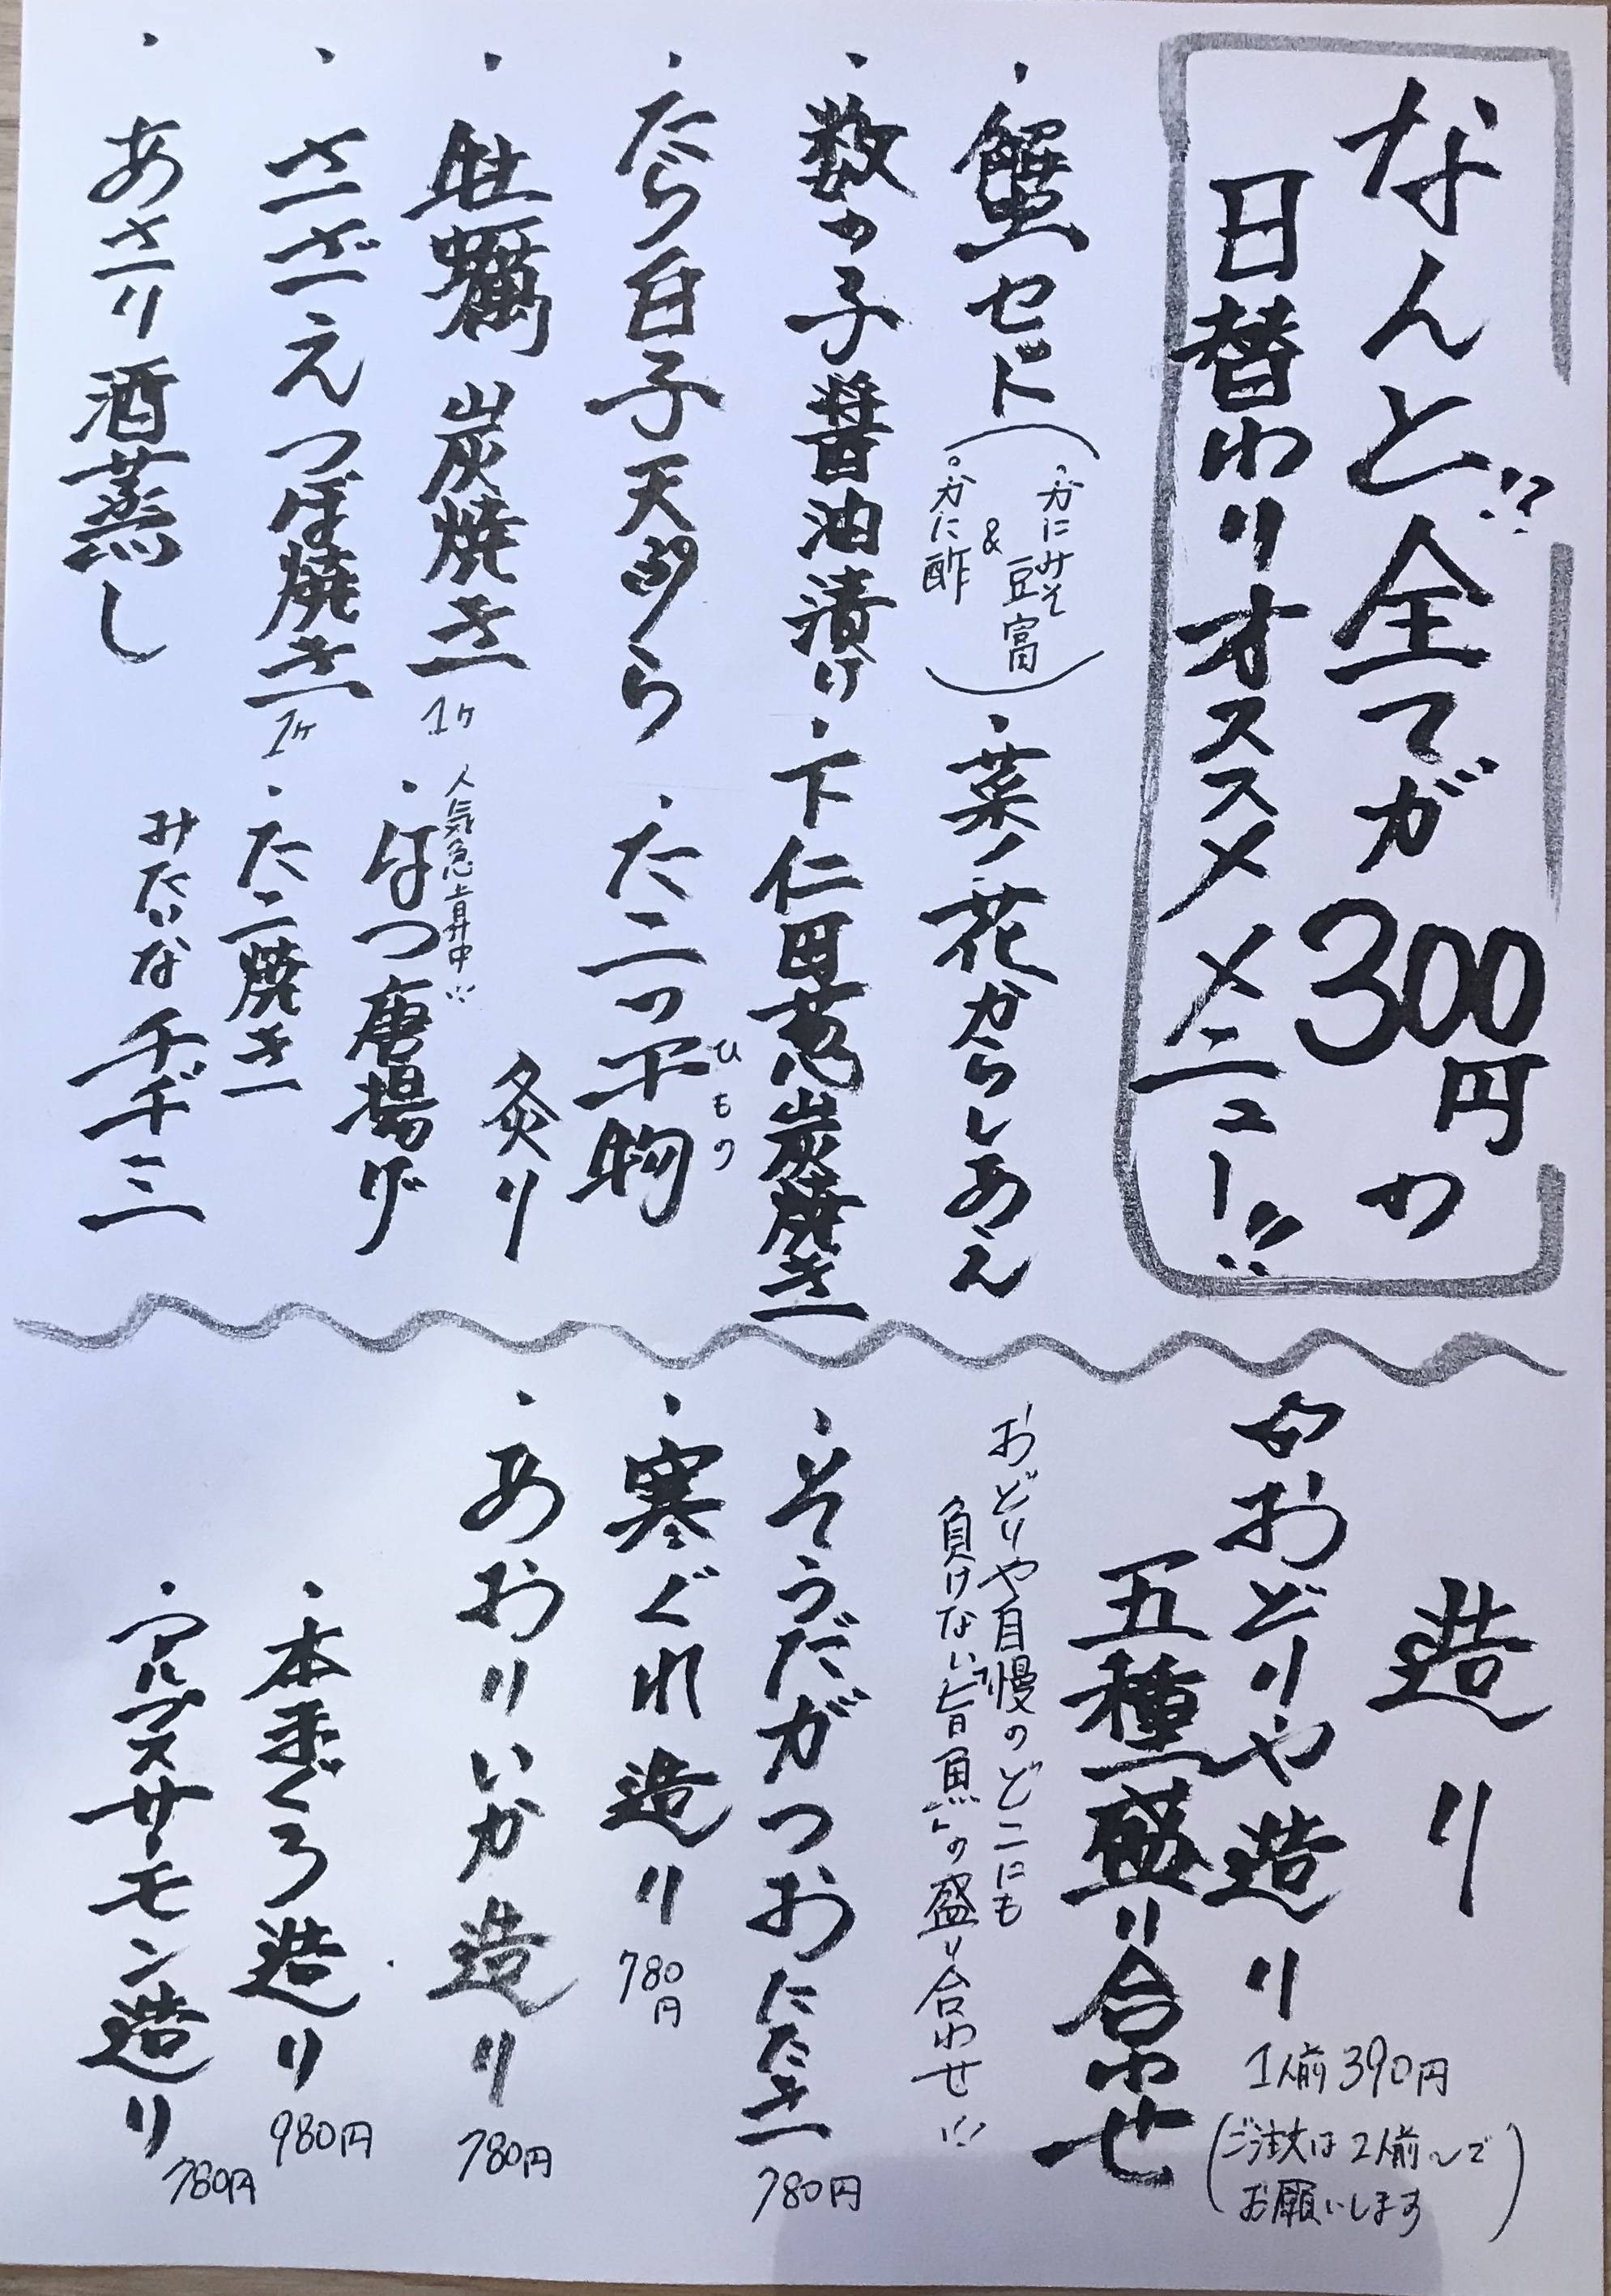 なんと!?全てガ300円の
日替わりオススメメニュー!!
・蟹セット
・かにみそ豆富
&
・かに酢
・数の子醤油漬け
・たら白子天ぷら
・牡蠣炭焼き 1ケ
・さざえつぼ焼き 1ケ
・あさり酒蒸し
・菜ノ花からしあえ
・下仁田葱炭焼き
・たこの干物
ひもの
炙り
人気急上昇中!!
・はつ唐揚げ
・たこ焼き
みたいなチヂミ
造り
おどりや造り
五種盛り合わせ
1人前390円
(ご注文は2人前〜で
お願いします)
おどりや自慢のどこにも
負けない「旨魚」の盛り合わせ!!
・そうだガつおにたき 780円
・寒ぐれ造り 780円
・あおりいか造り 780円
・本まぐろ造り 980円
・アルプスサーモン造り 780円